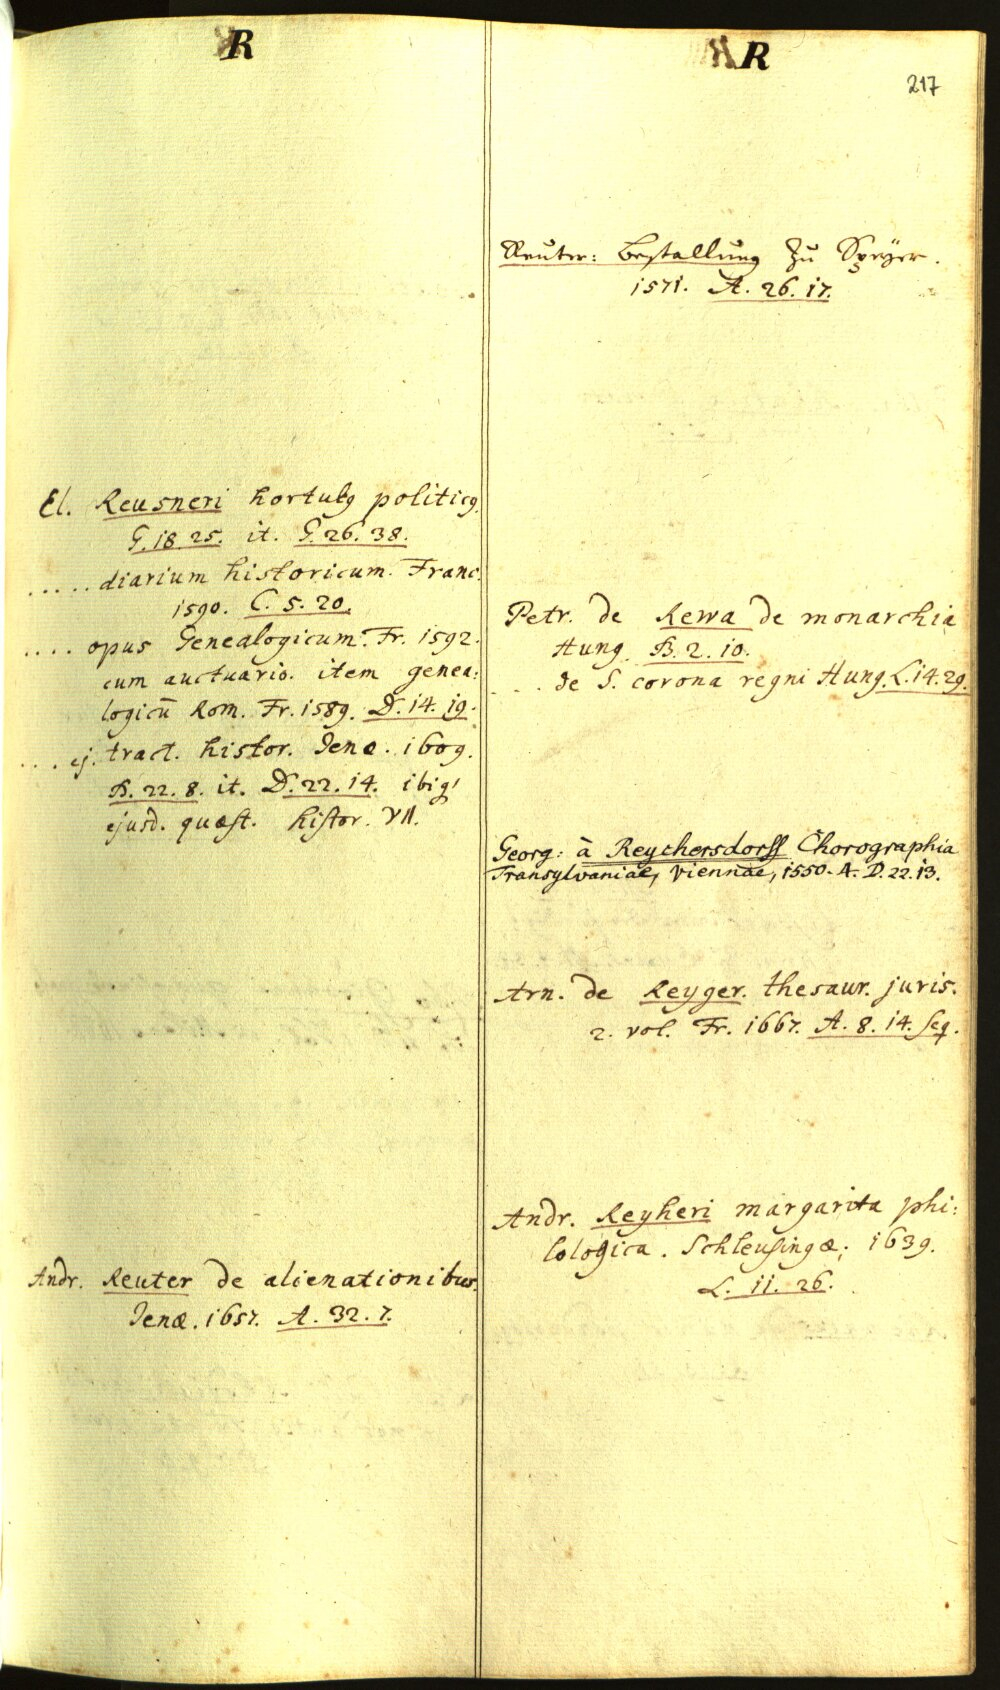 R
El. Reusneri hortulꝰ politicꝰ.
G. 18. 25. it. G. 26. 38.
..... diarium historicum. Franc.
1590. C. 5. 20.
.... opus Genealogicum. Fr. 1592.
cum auctuario. item genea:
logicū Rom. Fr. 1589. D. 14. 19.
... ej. tract. histor. Jenæ. 1609.
B. 22. 8. it. D. 22. 14. ibiꝗ
ejusd. quæst. histor. VII.
Andr. Reuter de alienationibus.
Jenæ. 1657. A. 32. 7.
R
217
Reuter: Bestallung Zu Speyer.
1571. A. 26. 17.
Petr. de Rewa de monarchia
Hung. B. 2. 10.
... de S. corona regni Hung. L. 14. 29.
Georg: à Reychersdorff Chorographia
Transylvaniae, viennae, 1550. A. D. 22. 13.
Arn. de Reyger. thesaur. juris.
2. vol. Fr. 1667. A. 8. 14. seq.
Andr. Reyheri margarita phi:
lologica. Schleusingæ, 1639.
L. 11. 26.